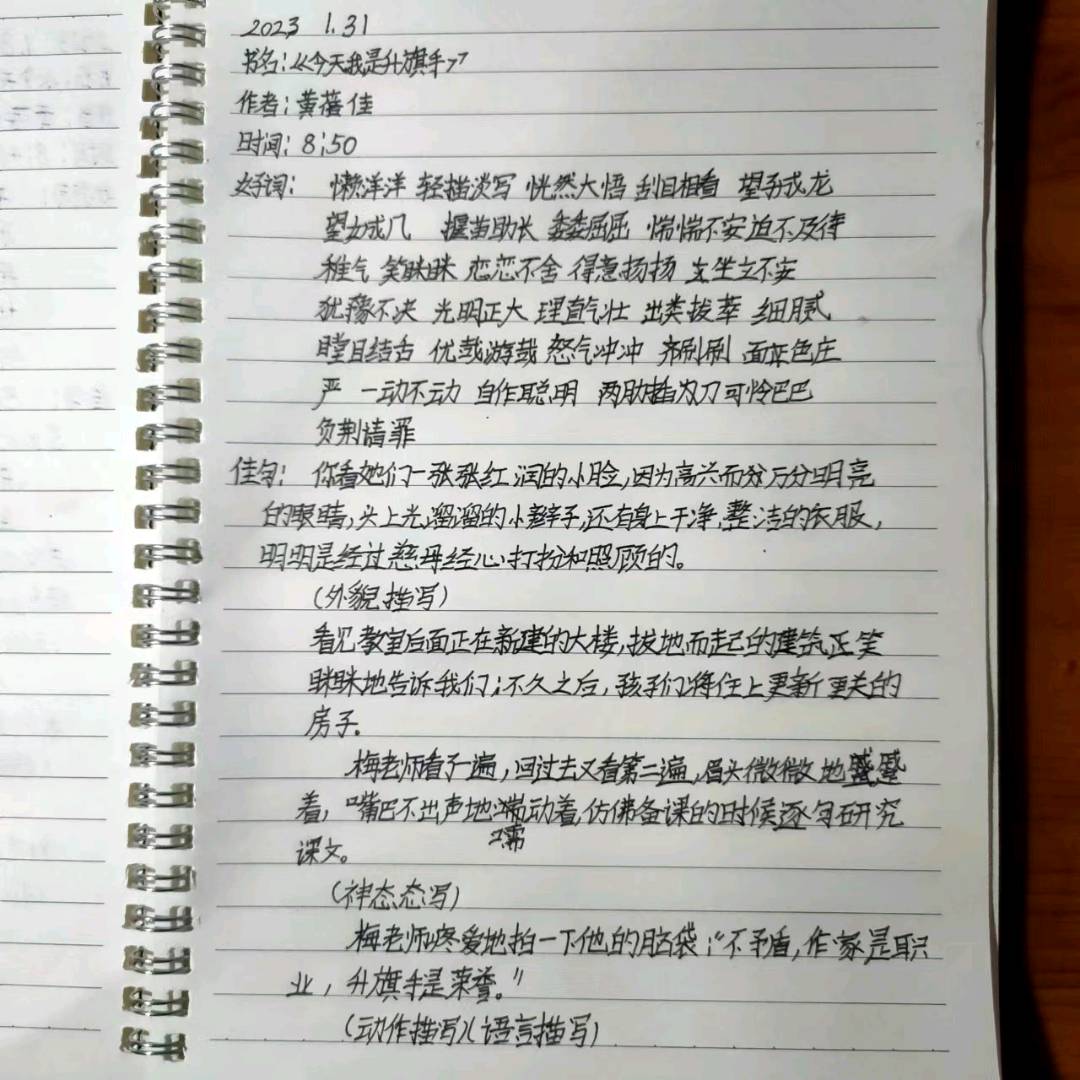 2023 1.31
书名:《今天我是升旗手》
作者:黄蓓佳
时间:8:50
好词: 懒洋洋 轻描淡写 恍然大悟 刮目相看 望子成龙
望女成凡 揠苗助长 委委屈屈 惴惴不安 迫不及待
稚气 笑眯眯 恋恋不舍 得意扬扬 坐立不安
犹豫不决 光明正大 理直气壮 出类拔萃 细腻
瞠目结舌 优哉游哉 怒气冲冲 齐刷刷 面色庄
严 一动不动 自作聪明 两肋插刀 可怜巴巴
负荆请罪
佳句: 你看她们一张张红润的小脸,因为高兴而分万分明亮
的眼睛,头上光溜溜的小辫子,还有身上干净,整洁的衣服,
明明是经过慈母经心打扮和照顾的。
(外貌描写)
看见教室后面正在新建的大楼,拔地而起的建筑正笑
眯眯地告诉我们:不久之后,孩子们将住上更新更美的
房子.
梅老师看了一遍,回过去又看第二遍,眉头微微地蹙
着,嘴巴不出声地蠕动着,仿佛备课的时候逐句研究
课文。
(神态态写)
梅老师疼爱地拍一下他的脑袋:"不矛盾,作家是职
业,升旗手是荣誉。"
(动作描写)(语言描写)